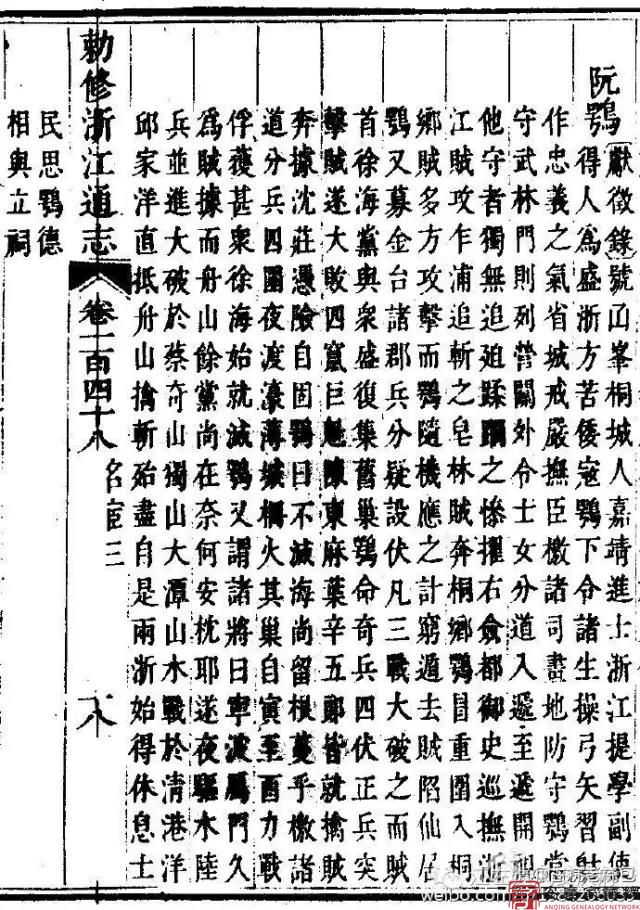 阮鶚獻徵錄號函峯桐城人嘉靖進士浙江提學副使
得人爲盛浙方苦倭寇鶚下令諸生操弓矢習射
作忠義之氣省城戒嚴撫臣檄諸司畫地防守鶚當
守武林門則列營關外令士女分道入遞至遞開視
他守者獨無追廹蹂躪之慘擢右僉都御史巡撫浙
江賊攻乍浦追斬之皂林賊奔桐鄉鶚冒重圍入桐
鄉賊多方攻擊而鶚隨機應之計窮遁去賊陷仙居
鶚又募金台諸郡兵分疑設伏凡三戰大破之而賊
首徐海黨與衆盛復集舊巢鶚命奇兵四伏正兵突
擊賊遂大敗四窟巨魁陳東麻葉辛五郎皆就擒賊
奔據沈莊憑險自固鶚曰不滅海尚留根蔓乎檄諸
道分兵四圍夜渡濠薄城柵火其巢自寅至酉力戰
俘獲甚衆徐海始就滅鶚又謂諸將曰寧波屬門久
爲賊據而舟山餘黨尚在奈何安枕耶遂夜驅水陸
兵並進大破於蔡奇山獨山大潭山水戰於清港洋
邱家洋直抵舟山擒斬殆盡自是兩浙始得休息士
敕修浙江通志 卷一百四十八 名宦三 十八
民思鶚德
相與立祠
ANQING GENEALOGY NETWORK